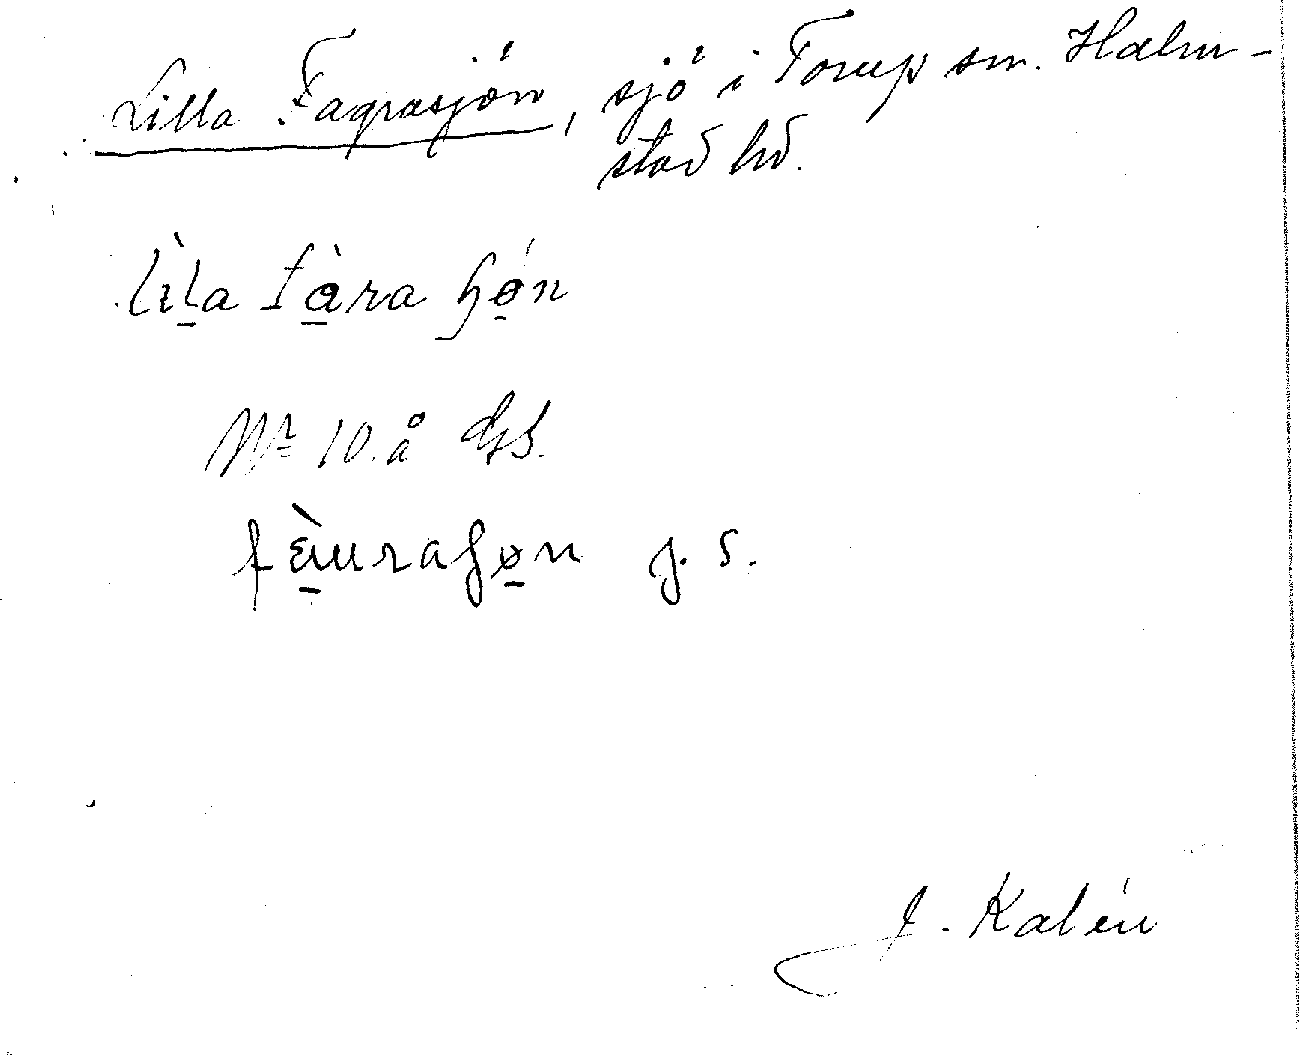 Lilla Fagrasjön, sjö i Torup sn. Halm-
stad hd.
lìla fàra ʃøn
Nr 10. å Gs.
fæ̀uraʃøn g. s.
J. Kalén